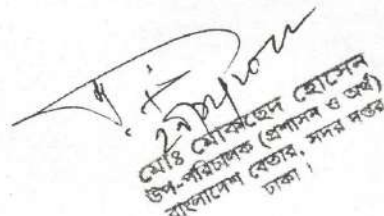 মোঃ মোকাছেদ হোসেন
উপ-পরিচালক (প্রশাসন ও অর্থ)
বাংলাদেশ বেতার, সদর দপ্তর
ঢাকা।